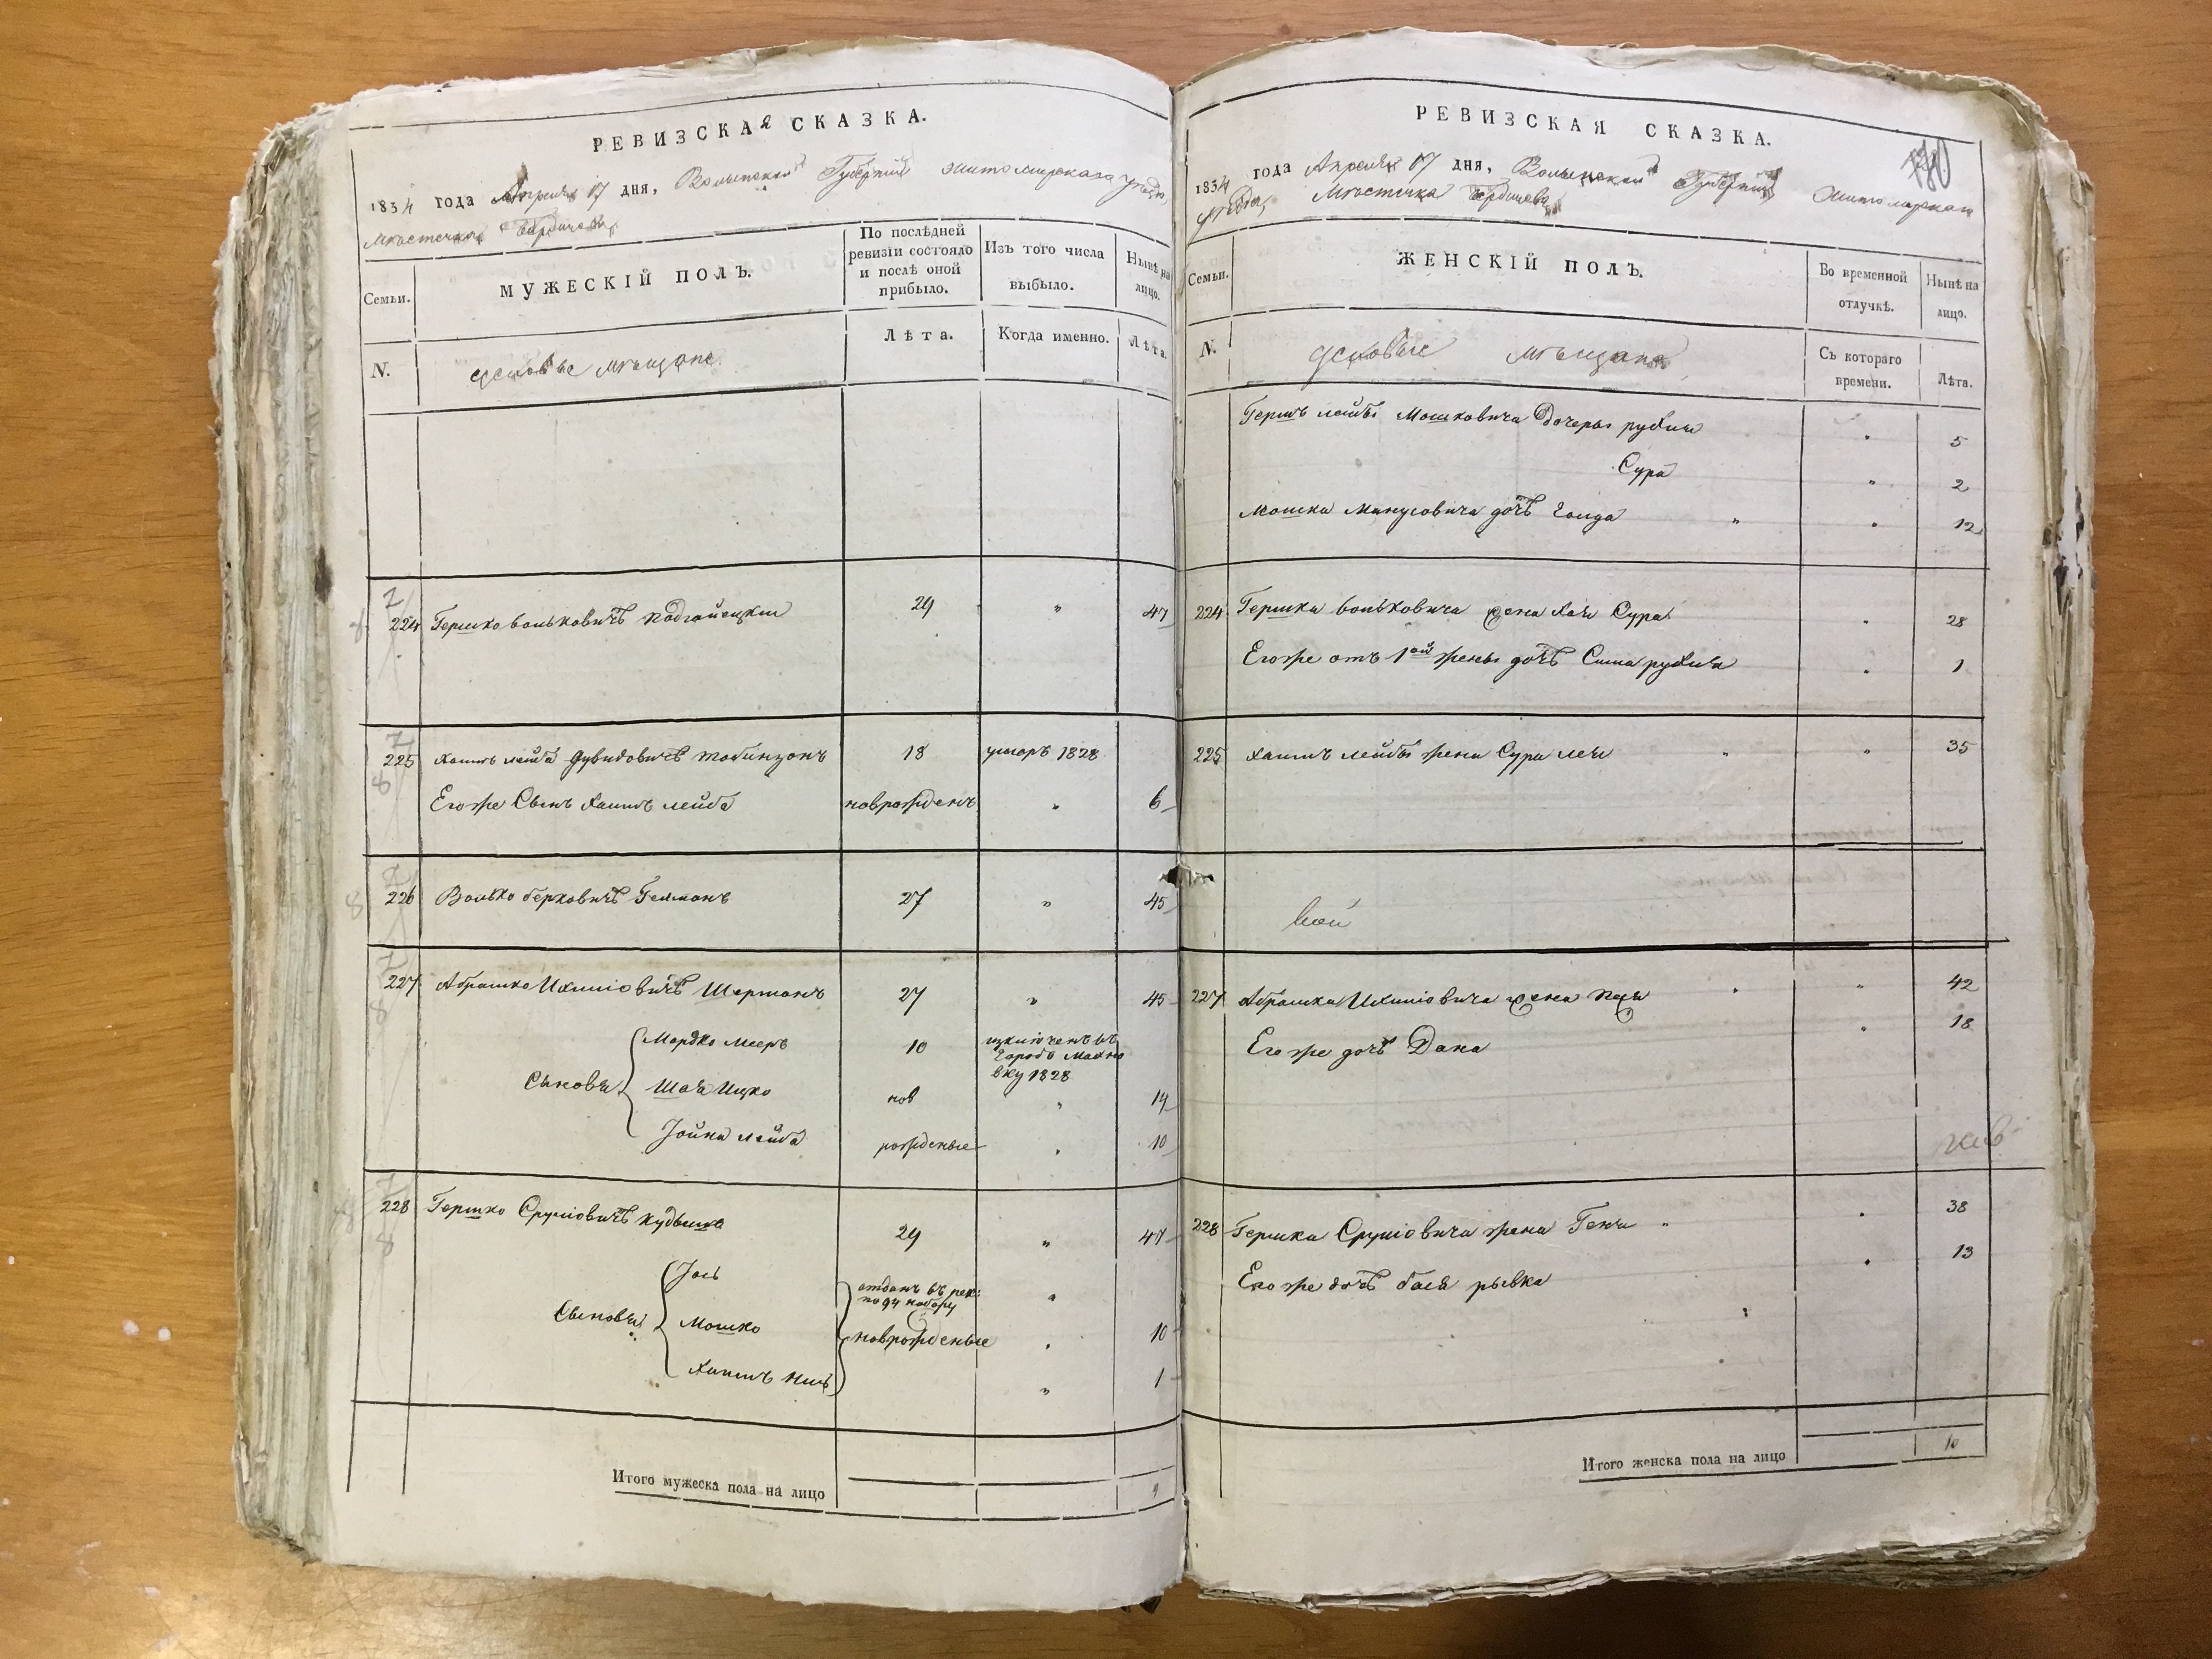 РЕВИЗСКАЯ СКАЗКА.
1834 года Апреля 17 дня, Волынской Губернии Житомирскаго уезда,
Местечка Бердичева
Семьи.
МУЖЕСКІЙ ПОЛЪ.
По послѣдней ревизіи состояло и послѣ оной прибыло.
Изъ того числа выбыло.
Нынѣ на лицо.
N.
мѣщане
Лѣта.
Когда именно.
Лѣта.
224 Гершко Вольковичъ Подгайецкій 29 " 47
225 Хаимъ Лейба Дувидовичъ Табинзонъ 18 умеръ 1828
Его же Сынъ Хаимъ Лейба новрожденъ " 6
226 Волько Берковичъ Гелманъ 27 " 45
227 Абрашко Ихиліовичъ Шерманъ 27 " 45
Сыновья
Мордко Мееръ 10 изключенъ въ
городъ Махно
вку 1828
Шая Ицко нов " 14
Іойна Лейба рожденые " 10
228 Гершко Сруліовичъ Кудыша 29 " 47
Сыновья
Іось отданъ въ рек:
по 94 набору "
Мошко новрожденые " 10
Хаимъ 1
Итого мужеска пола на лицо 9
РЕВИЗСКАЯ СКАЗКА.
1834 года Апреля 17 дня, Волынской Губерніи Житомирскаго
уезда, Местечка Бердичева
Семьи.
ЖЕНСКІЙ ПОЛЪ.
Во временной отлучкѣ.
Нынѣ на лицо.
N.
мѣщане
Съ котораго времени.
Лѣта.
Гершъ Лейбы Мошковича Дочеры Рухля " 5
Сура " 2
Мошка Манусовича дочь Голда " " 12
224 Гершка Вольковича жена Хая Сура " 28
Его же отъ 1ой жены дочь Сима Рухля " 1
225 Хаимъ Лейбы жена Сура Лея " " 35
227 Абрашка Ихиліовича жена Песя " " 42
Его же дочь Дана " 18
228 Гершка Сруліовича жена Геня " " 38
Его же дочь Бася Рывка " 13
Итого женска пола на лицо 10